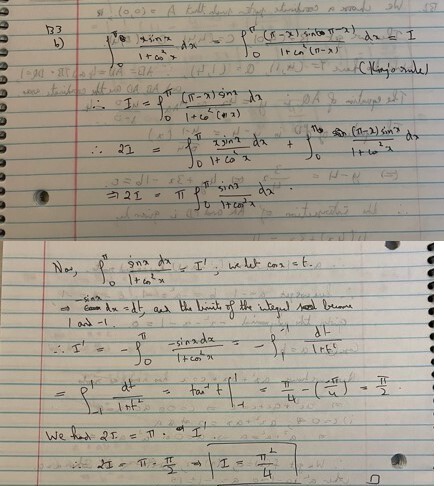 B3
b) ∫₀^π xsinx/(1+cos²x) dx = ∫₀^π (π-x)sin(π-x)/(1+cos²(π-x)) dx = I
(King's rule)
∴ I = ∫₀^π (π-x)sinx/(1+cos²(x)) dx
∴ 2I = ∫₀^π xsinx/(1+cos²x) dx + ∫₀^π (π-x)sinx/(1+cos²x) dx
⇒ 2I = π ∫₀^π sinx/(1+cos²x) dx.
Now, ∫₀^π sinx dx/(1+cos²x) = I'; we let cosx = t.
⇒ -sinx dx = dt, and the limits of the integral become
1 and -1.
∴ I' = -∫₀^π -sinx dx/(1+cos²x) = -∫₁^-1 dt/(1+t²)
= ∫₋₁^1 dt/(1+t²) = tan⁻¹ t |₋₁^1 = π/4 - (-π/4) = π/2.
We had 2I = π · I'
∴ 2I = π · π/2 ⇒ I = π²/4